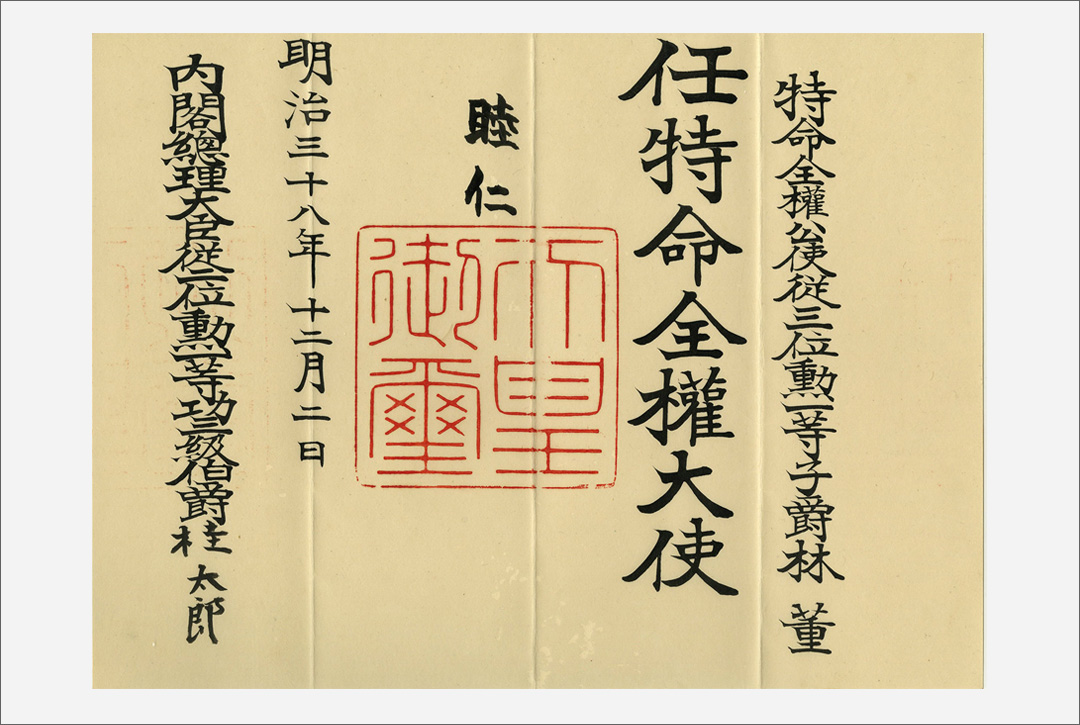 特命全權公使従三位勲一等子爵林 董
任特命全權大使
睦仁
天皇御璽
明治三十八年十二月二日
内閣總理大臣従二位勲一等功三級伯爵桂 太郎